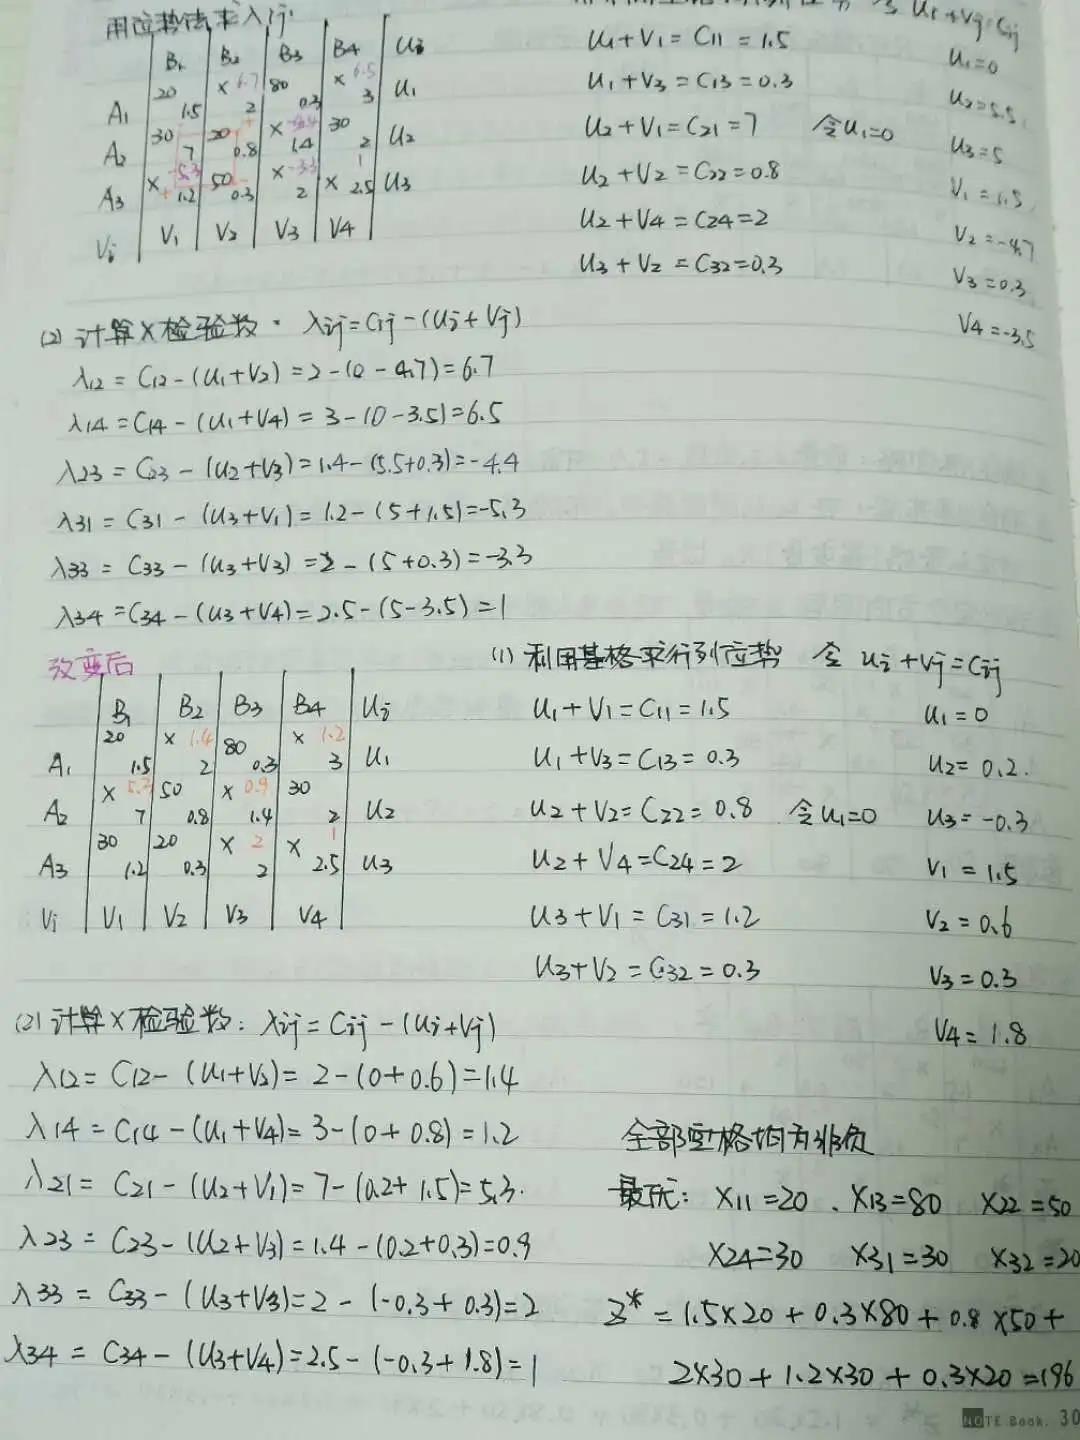 用位势法求λij
B1 B2 B3 B4 Ui
A1 20 1.5 × 6.7 2 80 0.3 × 6.5 3 U1
A2 30 7 20 0.8 + × -4.4 1.4 30 2 U2
A3 × -5.3 + 1.2 50 0.3 - × -3.3 2 × 1 2.5 U3
Vj V1 V2 V3 V4
令 Ui+Vj=Cij
U1+V1=C11=1.5
U1+V3=C13=0.3
U2+V1=C21=7 令U1=0
U2+V2=C22=0.8
U2+V4=C24=2
U3+V2=C32=0.3
U1=0
U2=5.5
U3=5
V1=1.5
V2=-4.7
V3=0.3
V4=-3.5
(2) 计算×检验数. λij=Cij-(Ui+Vj)
λ12=C12-(U1+V2)=2-(0-4.7)=6.7
λ14=C14-(U1+V4)=3-(0-3.5)=6.5
λ23=C23-(U2+V3)=1.4-(5.5+0.3)=-4.4
λ31=C31-(U3+V1)=1.2-(5+1.5)=-5.3
λ33=C33-(U3+V3)=2-(5+0.3)=-3.3
λ34=C34-(U3+V4)=2.5-(5-3.5)=1
改变后
B1 B2 B3 B4 Ui
A1 20 1.5 × 1.4 2 80 0.3 × 1.2 3 U1
A2 × 5.3 7 50 0.8 × 0.9 1.4 30 2 U2
A3 30 1.2 20 0.3 × 2 2 × 1 2.5 U3
Vj V1 V2 V3 V4
(1) 利用基格求行列位势 令 Ui+Vj=Cij
U1+V1=C11=1.5
U1+V3=C13=0.3
U2+V2=C22=0.8 令U1=0
U2+V4=C24=2
U3+V1=C31=1.2
U3+V2=C32=0.3
U1=0
U2=0.2.
U3=-0.3
V1=1.5
V2=0.6
V3=0.3
V4=1.8
(2) 计算×检验数: λij=Cij-(Ui+Vj)
λ12=C12-(U1+V2)=2-(0+0.6)=1.4
λ14=C14-(U1+V4)=3-(0+0.8)=1.2
λ21=C21-(U2+V1)=7-(0.2+1.5)=5.3.
λ23=C23-(U2+V3)=1.4-(0.2+0.3)=0.9
λ33=C33-(U3+V3)=2-(-0.3+0.3)=2
λ34=C34-(U3+V4)=2.5-(-0.3+1.8)=1
全部空格均为非负
最优: X11=20 . X13=80 X22=50
X24=30 X31=30 X32=20
Z*=1.5×20+0.3×80+0.8×50+
2×30+1.2×30+0.3×20=196
NOTE Book. 30